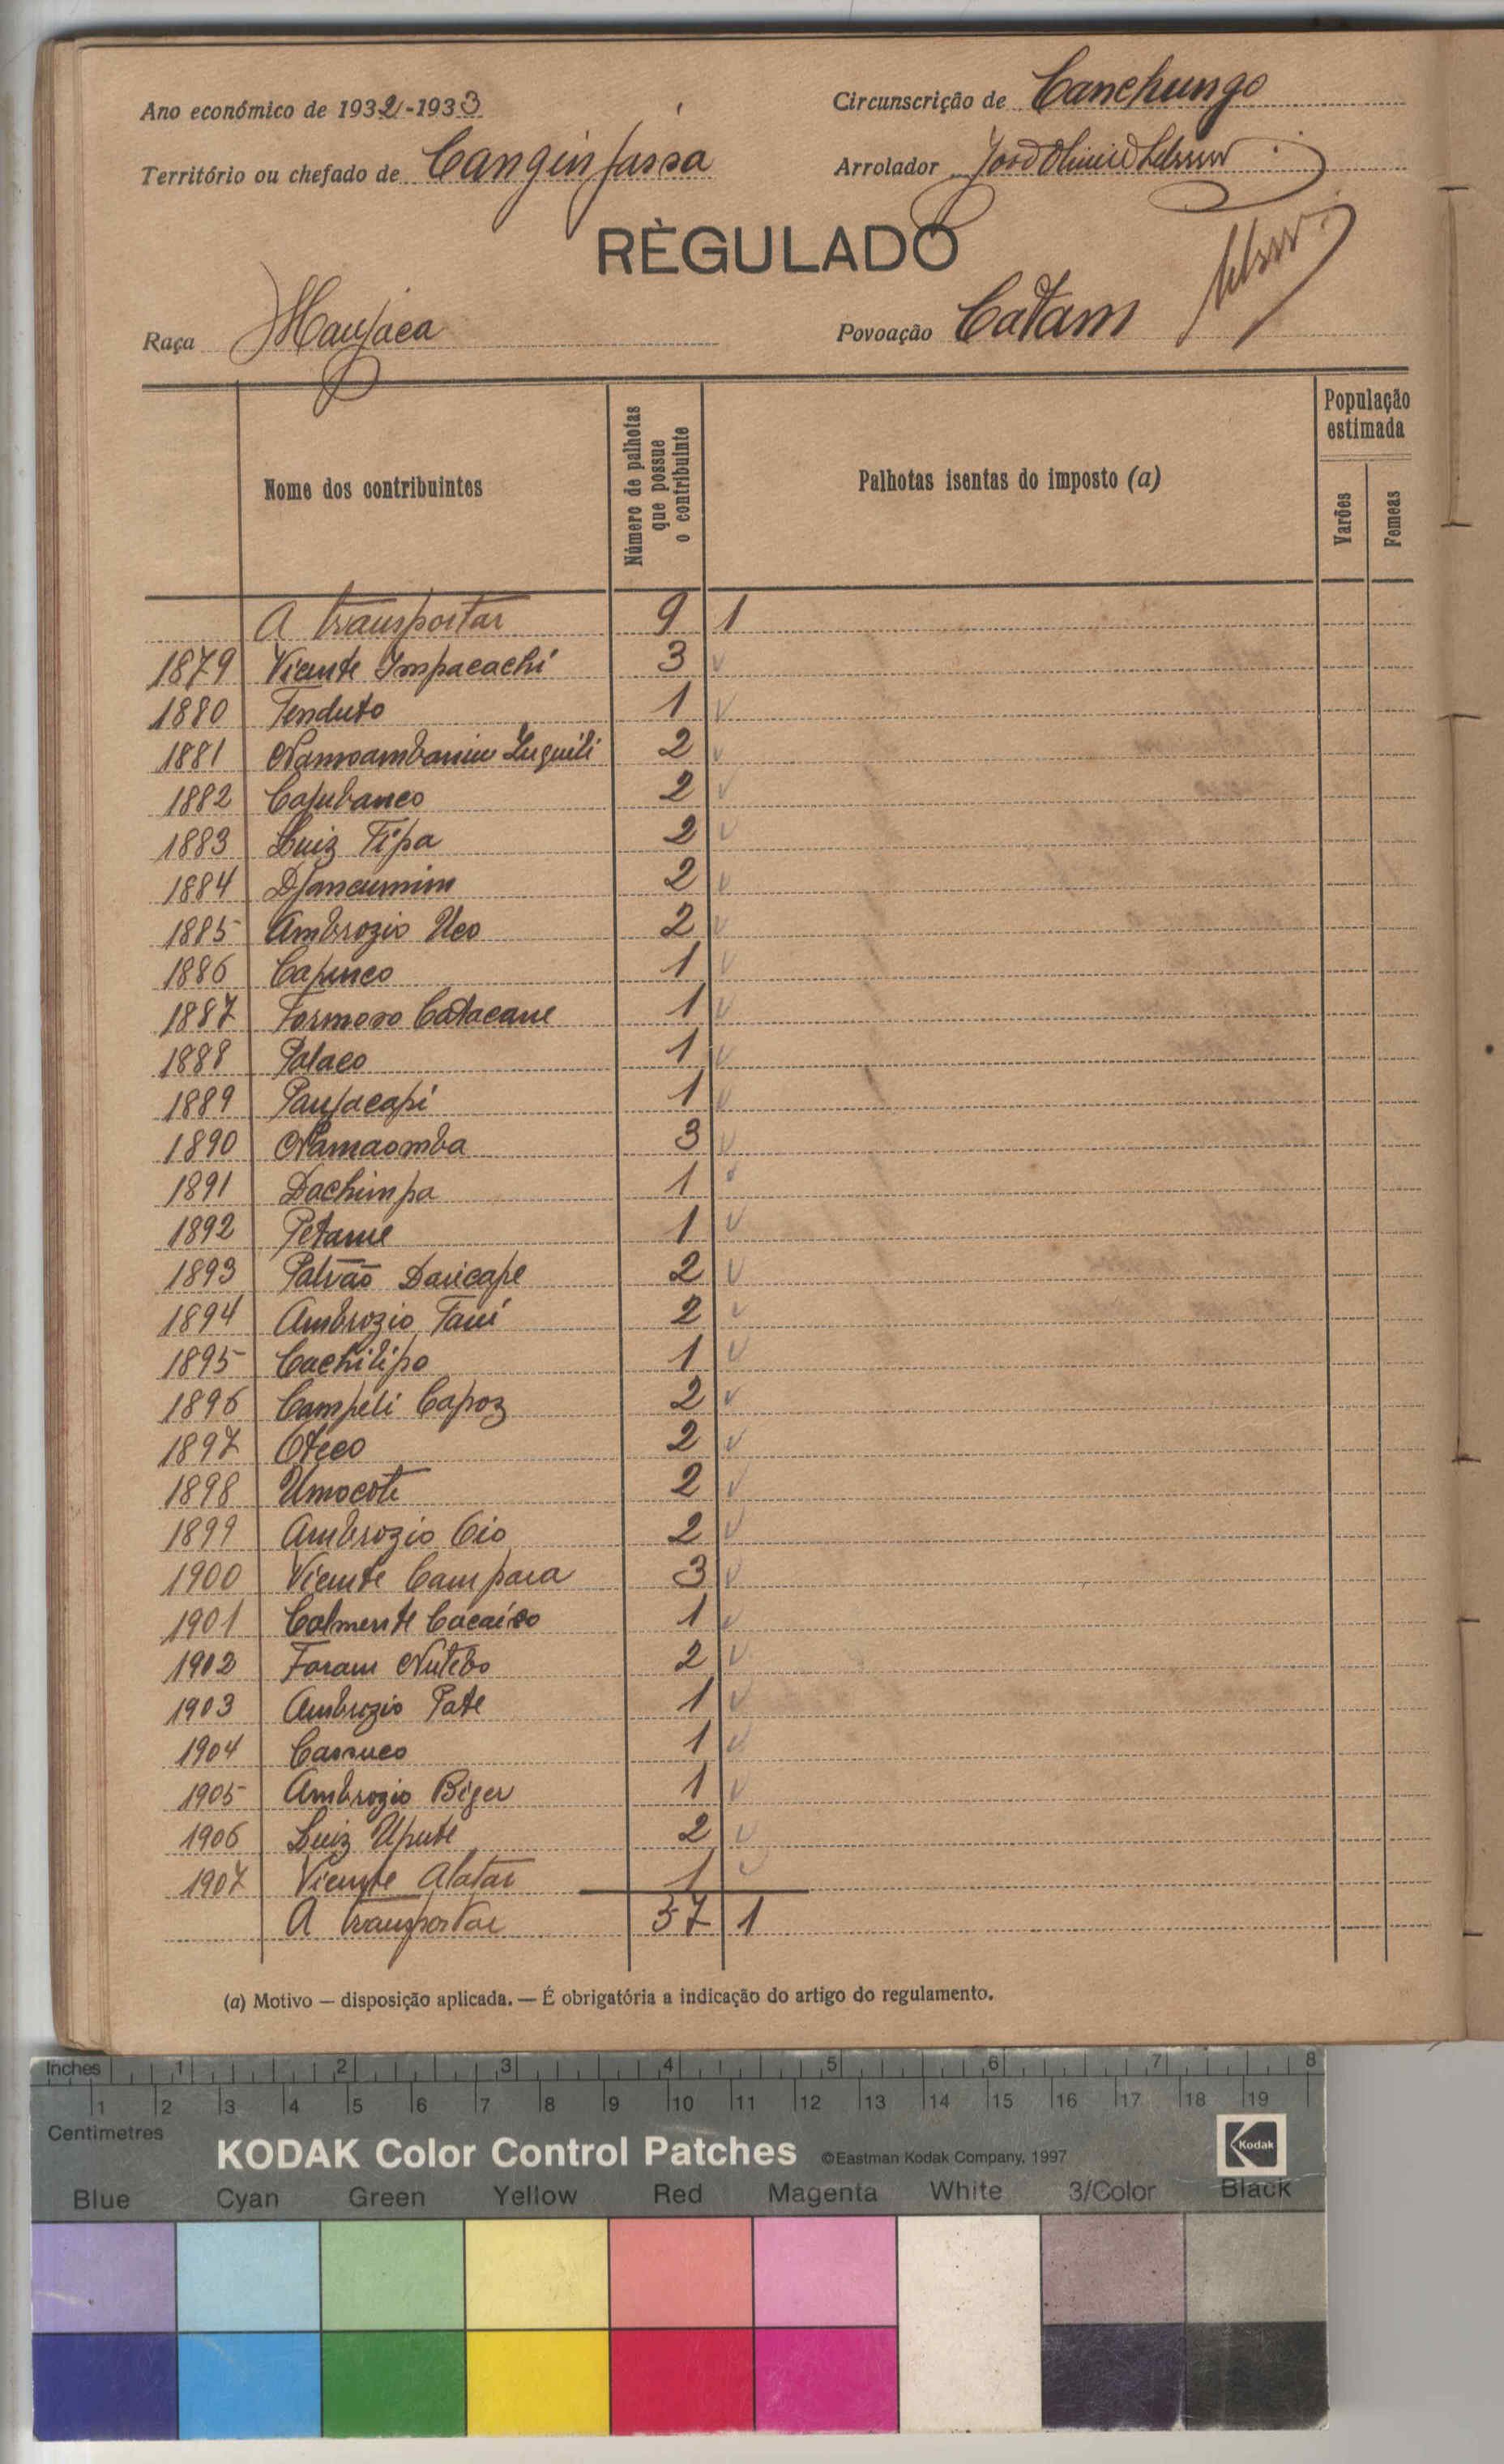 Ano económico de 1932-1933
Circunscrição de Canchungo
Território ou chefado de Canginjassa
Arrolador
RÈGULADO
Raça Manjaca
Povoação Catam
Nome dos contribuintes
Número de palhotas que possue o contribuinte
Palhotas isentas do imposto (a)
População estimada
Varões
Femeas
A transportar 9 1
1879 Vicente Impacachi 3
1880 Tenduto 1
1881 2
1882 Cajubanco 2
1883 Luiz Tipa 2
1884 Djancumim 2
1885 Ambrozio Uco 2
1886 Capinco 1
1887 Formoso Catacane 1
1888 Palaco 1
1889 Panjacapi 1
1890 Namaomba 3
1891 Dachimpa 1
1892 Petame 1
1893 Patrão Daricape 2
1894 Ambrozio Tani 2
1895 Cachilipo 1
1896 Campeli Capoz 2
1897 Oteco 2
1898 Umocote 2
1899 Ambrozio Cio 2
1900 Vicente Campara 3
1901 1
1902 2
1903 Ambrozio Pate 1
1904 Cassuco 1
1905 Ambrozio Biger 1
1906 Luiz Upute 2
1907 Vicente Alatar 1
A transportar 57 1
(a) Motivo — disposição aplicada. — É obrigatória a indicação do artigo do regulamento.
Inches 1 2 3 4 5 6 7 8
1 2 3 4 5 6 7 8 9 10 11 12 13 14 15 16 17 18 19
Centimetres
KODAK Color Control Patches ©Eastman Kodak Company, 1997 Kodak
Blue Cyan Green Yellow Red Magenta White 3/Color Black